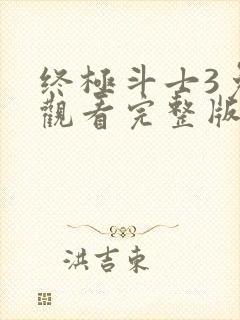 终極斗士3
觀看完整版
洪吉東